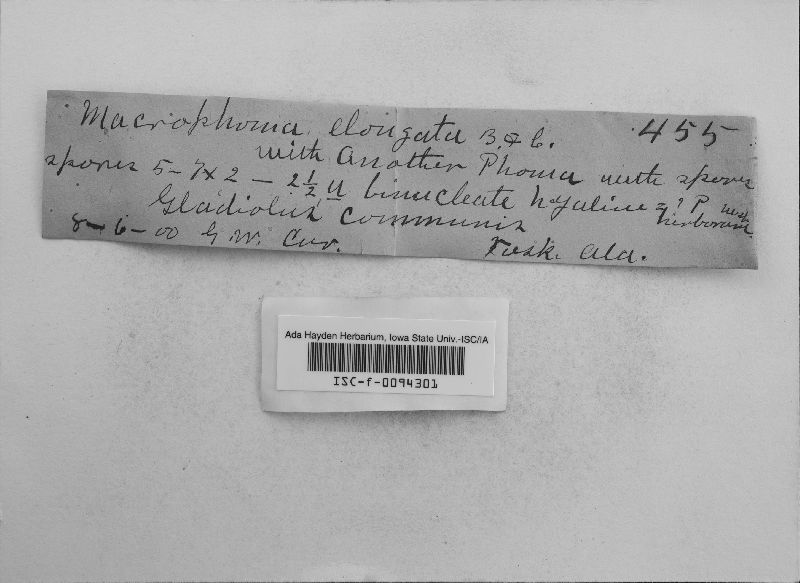 Macrophoma elongata B. & C. 455
with another Phoma with spores
spores 5-7 x 2 - 2 1/2 u binucleate hyaline P.
herbarum
Gladiolus communis
8-6-00 G. W. Car. Tusk. Ala.
Ada Hayden Herbarium, Iowa State Univ.-ISC/IA
ISC-f-0094301